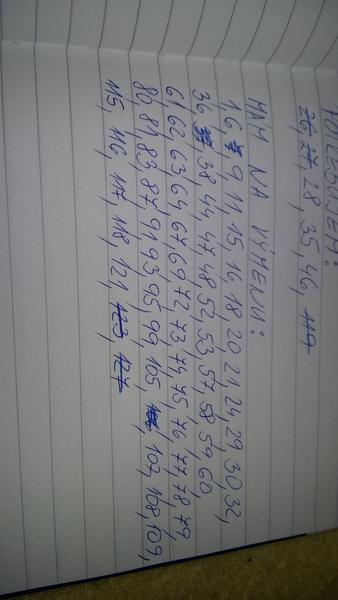 POTREBUJEM:
26, 27, 28, 35, 46, 119
MAM NA VÝMENU:
1 6, 9, 11, 15, 16, 18, 20, 21, 24, 29, 30, 32,
36, 38, 44, 47, 48, 52, 53, 57, 58, 59, 60
61, 62, 63, 64, 67, 69, 72, 73, 74, 75, 76, 77, 78, 79,
80, 81, 83, 87, 91, 93, 95, 99, 105, 107, 108, 109,
115, 116, 117, 118, 121, 123, 127